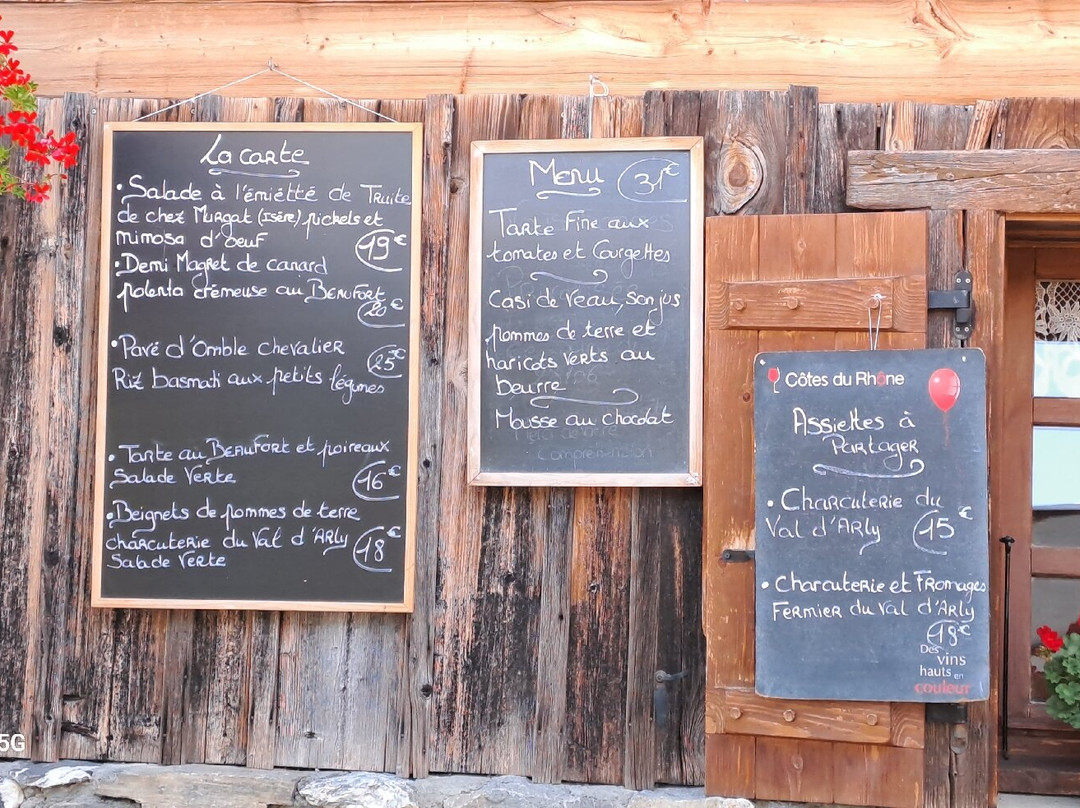 La carte
• Salade à l'émietté de Truite
de chez Murgat (Isère), pickels et
mimosa d'oeuf
19€
• Demi Magret de canard
polenta crémeuse au Beaufort
20€
• Pavé d'Omble chevalier
25€
Riz basmati aux petits légumes
• Tarte au Beaufort et poireaux
Salade Verte
16€
• Beignets de pommes de terre
charcuterie du Val d'Arly
18€
Salade Verte
Menu 31€
Tarte Fine aux
tomates et Courgettes
Casi de veau, son jus
pommes de terre et
haricots verts au
beurre
Mousse au chocolat
Côtes du Rhône
Assiettes à
Partager
• Charcuterie du
Val d'Arly
15€
• Charcuterie et Fromages
Fermier du Val d'Arly
18€
Des
vins
hauts en
couleur
5G